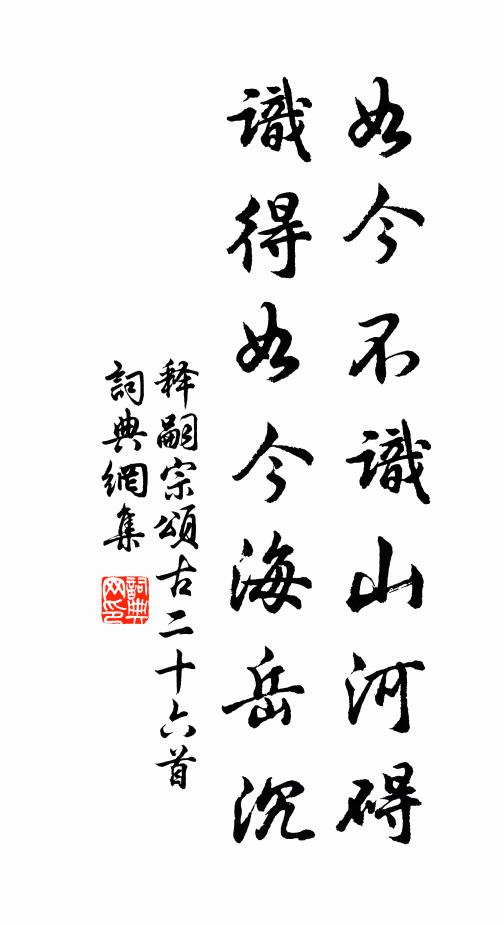 如今不識山河碍
識得如今海岳沉
释嗣宗頌古二十六首
詞典網集
詞典
网印